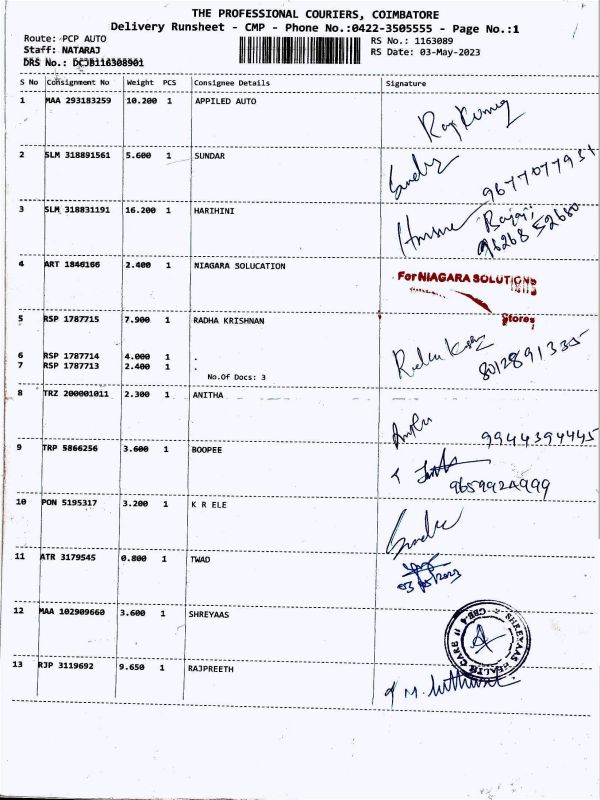 THE PROFESSIONAL COURIERS, COIMBATORE
Delivery Runsheet - CMP - Phone No.:0422-3505555 - Page No.:1
Route: PCP AUTO
RS No.: 1163089
Staff: NATARAJ
RS Date: 03-May-2023
DRS No.: DCJB116308901
S No Consignment No Weight PCS Consignee Details Signature
1 MAA 293183259 10.200 1 APPILED AUTO
Raj Kumar
2 SLM 318891561 5.600 1 SUNDAR
9677077931
3 SLM 318831191 16.200 1 HARIHINI
Balaji
96268 52680
4 ART 1846166 2.400 1 NIAGARA SOLUCATION
For NIAGARA SOLUTIONS
Stores
5 RSP 1787715 7.900 1 RADHA KRISHNAN
6 RSP 1787714 4.000 1 .
8012891335
7 RSP 1787713 2.400 1 .
No.Of Docs: 3
8 TRZ 200001011 2.300 1 ANITHA
9944394445
9 TRP 5866256 3.600 1 BOOPEE
9659924999
10 PON 5195317 3.200 1 K R ELE
11 ATR 3179545 0.800 1 TWAD
03/05/2023
12 MAA 102909660 3.600 1 SHREYAAS
SHREYAAS HEALTH CARE
CBE-4
13 RJP 3119692 9.650 1 RAJPREETH